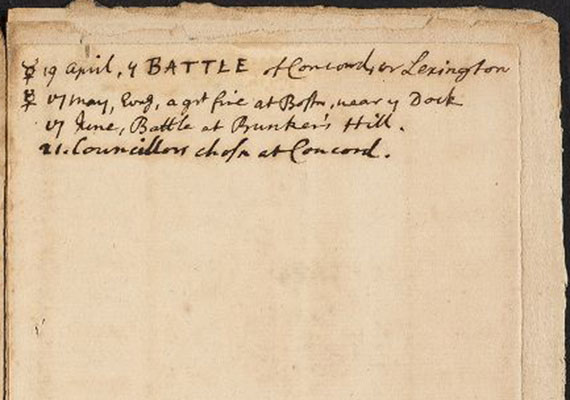 ☿ 19 April, y BATTLE of Concord, or Lexington
☿ 17 May, Evg, a grt fire at Bostn, near y Dock
17 June, Battle at Bunker's Hill.
21. Councillors chosn at Concord.